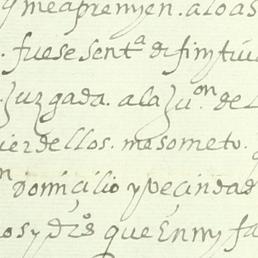 y me apremyen. a lo as
. fuese sentª difinitiv
Juzgada. a la Juon de l
ier dellos. me someto.
domiçilio y veçindad
os y dros que En my fa